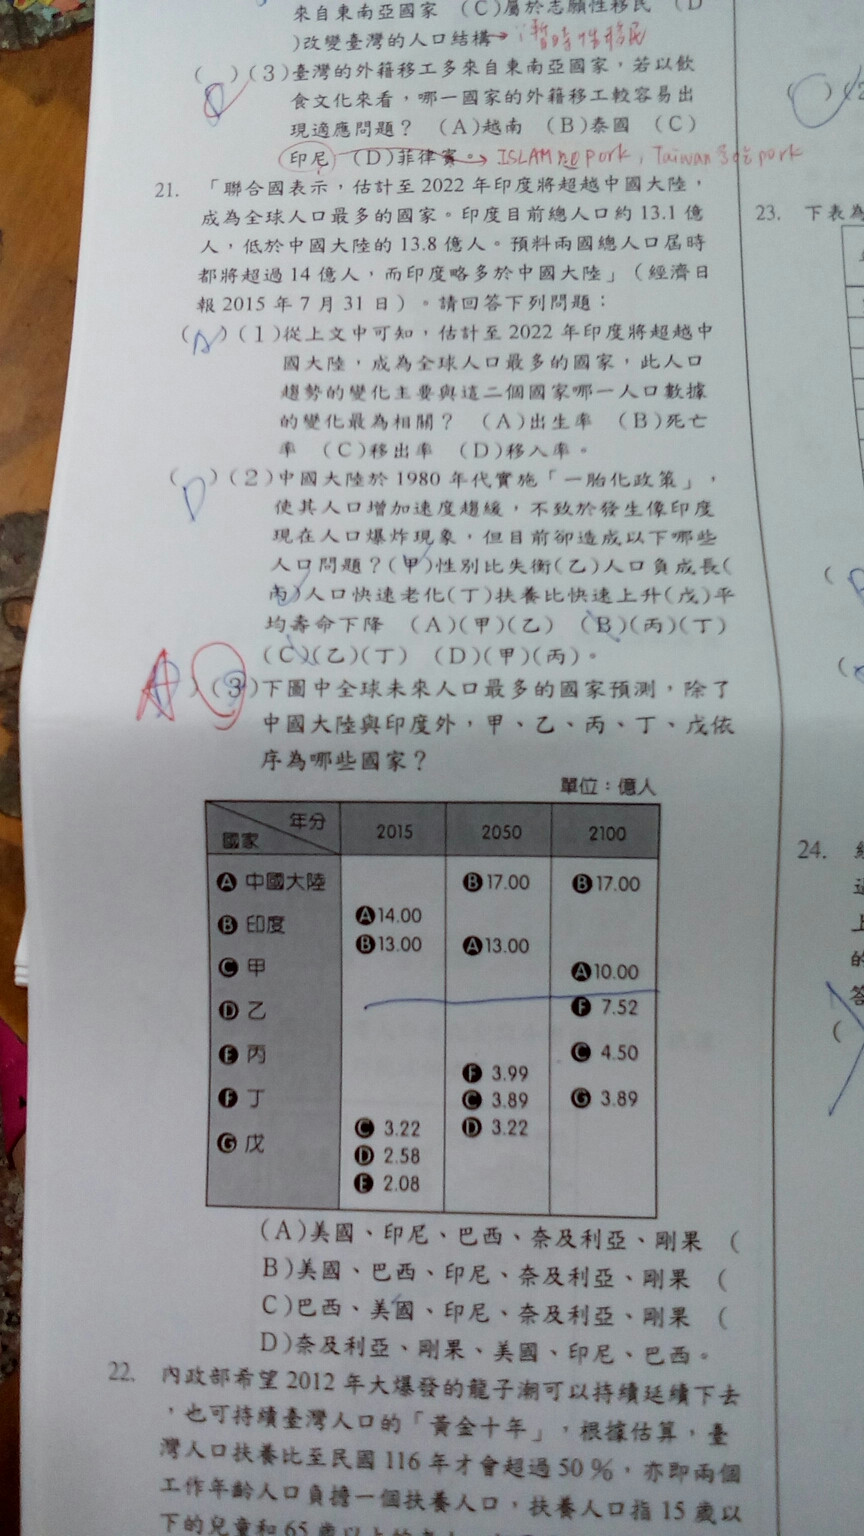 來自東南亞國家 (C)屬於志願性移民 (D
)改變臺灣的人口結構→暫時性移民
( )(3)臺灣的外籍移工多來自東南亞國家，若以飲
食文化來看，哪一國家的外籍移工較容易出
現適應問題？ (A)越南 (B)泰國 (C)
印尼 (D)菲律賓。→ ISLAM pork, Taiwan pork
21. 「聯合國表示，估計至2022年印度將超越中國大陸，
成為全球人口最多的國家。印度目前總人口約13.1億
人，低於中國大陸的13.8億人。預料兩國總人口屆時
都將超過14億人，而印度略多於中國大陸」(經濟日
報2015年7月31日)。請回答下列問題：
(A)(1)從上文中可知，估計至2022年印度將超越中
國大陸，成為全球人口最多的國家，此人口
趨勢的變化主要與這二個國家哪一人口數據
的變化最為相關？ (A)出生率 (B)死亡
率 (C)移出率 (D)移入率。
(D)(2)中國大陸於1980年代實施「一胎化政策」，
使其人口增加速度趨緩，不致於發生像印度
現在人口爆炸現象，但目前卻造成以下哪些
人口問題？(甲)性別比失衡(乙)人口負成長(
丙)人口快速老化(丁)扶養比快速上升(戊)平
均壽命下降 (A)(甲)(乙) (B)(丙)(丁)
(C)(乙)(丁) (D)(甲)(丙)。
A (3)下圖中全球未來人口最多的國家預測，除了
中國大陸與印度外，甲、乙、丙、丁、戊依
序為哪些國家？
單位：億人
年分
國家
2015 2050 2100
A 中國大陸 B 17.00 B 17.00
B 印度 A 14.00
B 13.00 A 13.00
C 甲 A 10.00
D 乙 F 7.52
E 丙 C 4.50
F 3.99
F 丁 C 3.89 G 3.89
C 3.22 D 3.22
G 戊
D 2.58
E 2.08
(A)美國、印尼、巴西、奈及利亞、剛果 (
B)美國、巴西、印尼、奈及利亞、剛果 (
C)巴西、美國、印尼、奈及利亞、剛果 (
D)奈及利亞、剛果、美國、印尼、巴西。
22. 內政部希望2012年大爆發的龍子潮可以持續延續下去
，也可持續臺灣人口的「黃金十年」，根據估算，臺
灣人口扶養比至民國116年才會超過50%，亦即兩個
工作年齡人口負擔一個扶養人口，扶養人口指15歲以
下的兒童和65歲以上的
23. 下表為
24.